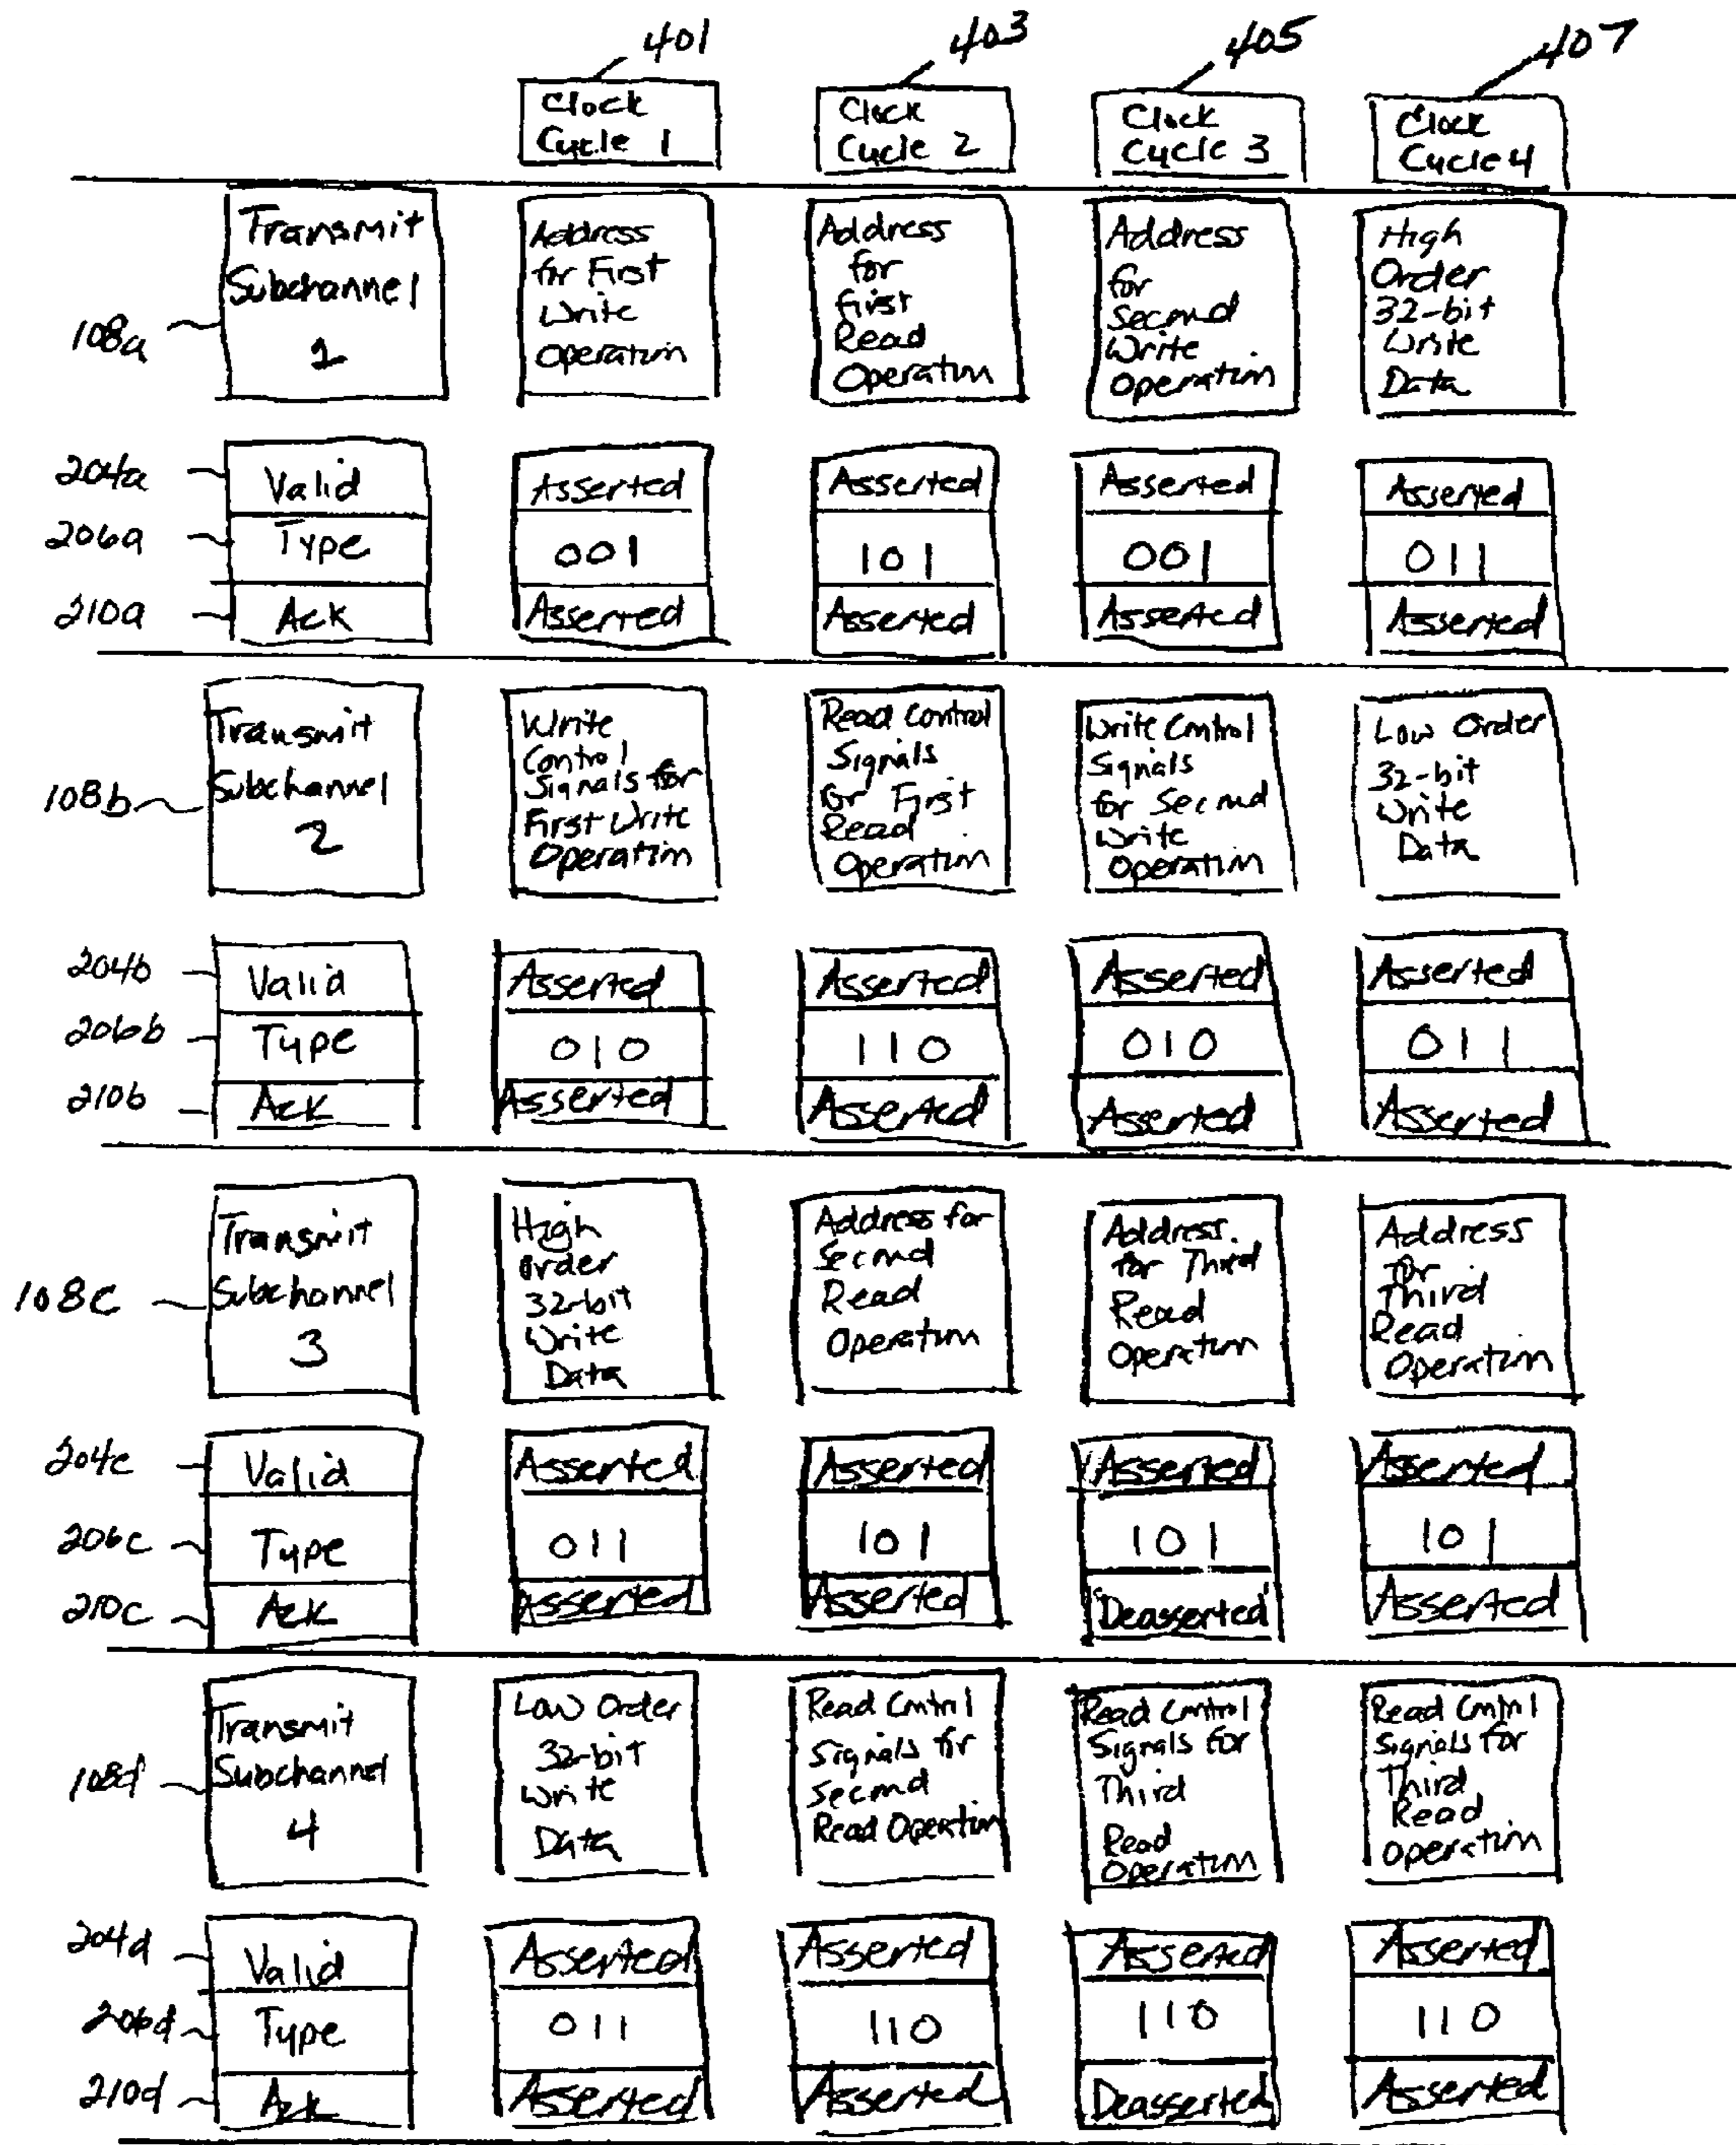 401
403
405
407
Clock
Cycle 1
Clock
Cycle 2
Clock
Cycle 3
Clock
Cycle 4
108a
Transmit
Subchannel
1
Address
for First
Write
Operation
Address
for
first
Read
Operation
Address
for
Second
Write
Operation
High
Order
32-bit
Write
Data
204a
Valid
Asserted
Asserted
Asserted
Asserted
206a
Type
001
101
001
011
210a
Ack
Asserted
Asserted
Asserted
Asserted
108b
Transmit
Subchannel
2
Write
Control
Signals for
First Write
Operation
Read Control
Signals
for First
Read
Operation
Write Control
Signals
for Second
Write
Operation
Low Order
32-bit
Write
Data
204b
Valid
Asserted
Asserted
Asserted
Asserted
206b
Type
010
110
010
011
210b
Ack
Asserted
Asserted
Asserted
Asserted
108c
Transmit
Subchannel
3
High
order
32-bit
Write
Data
Address for
Second
Read
Operation
Address
for Third
Read
Operation
Address
for
Third
Read
Operation
204c
Valid
Asserted
Asserted
Asserted
Asserted
206c
Type
011
101
101
101
210c
Ack
Asserted
Asserted
Deasserted
Asserted
108d
Transmit
Subchannel
4
Low Order
32-bit
Write
Data
Read Control
Signals for
Second
Read Operation
Read Control
Signals for
Third
Read
Operation
Read Control
Signals for
Third
Read
Operation
204d
Valid
Asserted
Asserted
Asserted
Asserted
206d
Type
011
110
110
110
210d
Ack
Asserted
Asserted
Deasserted
Asserted